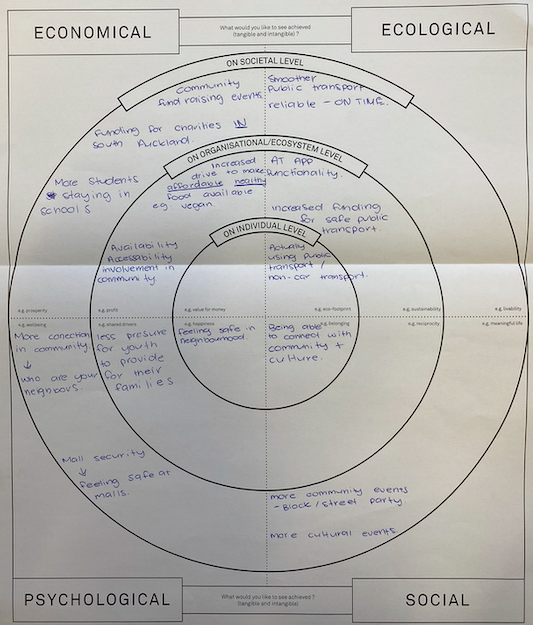 ECONOMICAL
What would you like to see achieved
(tangible and intangible) ?
ECOLOGICAL
ON SOCIETAL LEVEL
Community
fundraising events.
Smoother
Public transport
reliable - ON TIME.
Funding for charities IN
South Auckland.
ON ORGANISATIONAL/ECOSYSTEM LEVEL
Increased
drive to make
affordable healthy
food available
eg. vegan.
AT APP
functionality.
More Students
staying in
schools
increased funding
for safe public
transport.
ON INDIVIDUAL LEVEL
Availability
Accessability
involvement in
community.
Actually
using public
transport /
non-car transport.
e.g. prosperity
e.g. profit
e.g. value for money
e.g. eco-footprint
e.g. sustainability
e.g. livability
e.g. wellbeing
e.g. shared drivers
e.g. happiness
e.g. belonging
e.g. reciprocity
e.g. meaningful life
More conection
in community.
↓
who are your
neighbors.
less presure
for youth
to provide
for their
families
feeling safe in
neighbourhood.
Being able
to connect with
community +
culture.
Mall security
↓
feeling safe at
malls.
more community events
- Block / street party.
more cultural events.
PSYCHOLOGICAL
What would you like to see achieved ?
(tangible and intangible)
SOCIAL